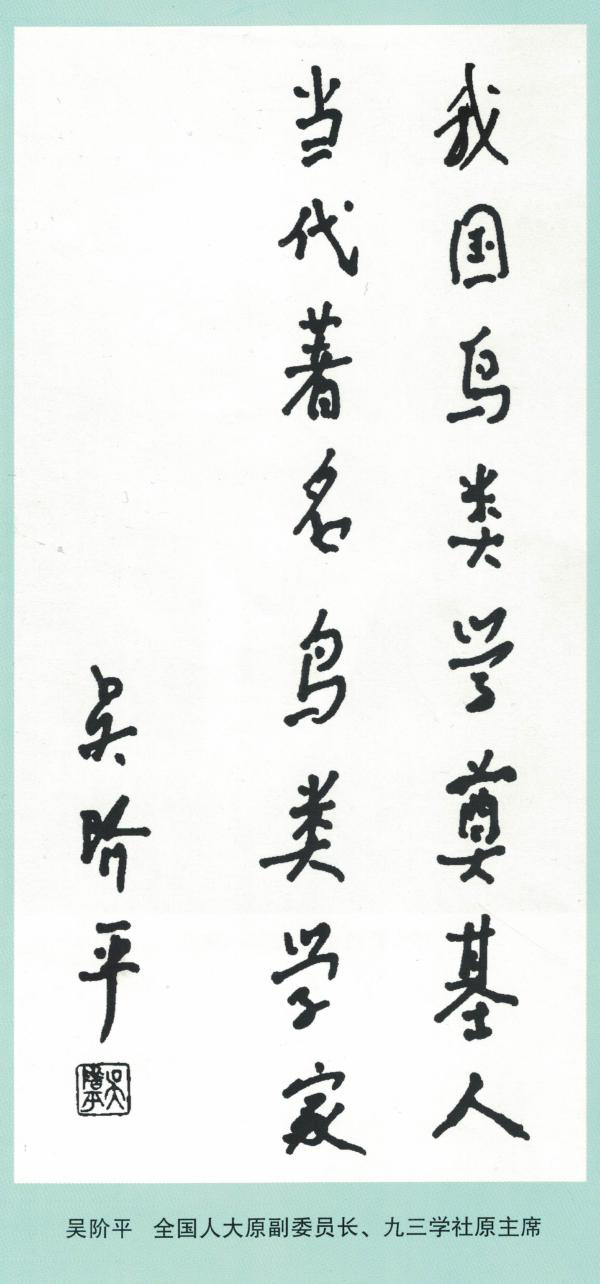 我国鸟类学奠基人
当代著名鸟类学家
吴阶平
吴阶平　全国人大原副委员长、九三学社原主席